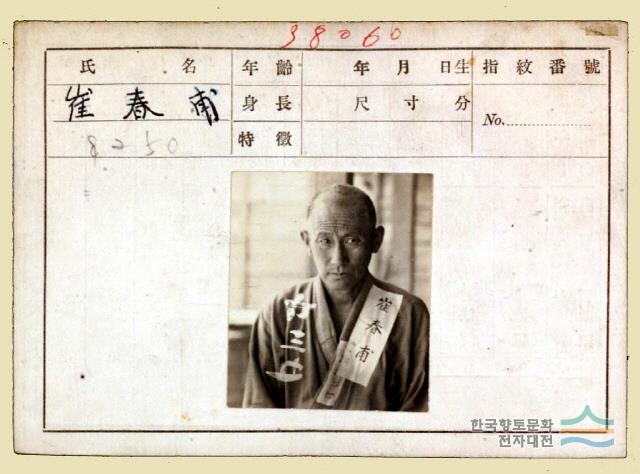 38060
氏名 年齡 年月日生 指紋番號
崔春甫 身長 尺寸分 No.
8250 特徵
崔春甫
한국향토문화
전자대전